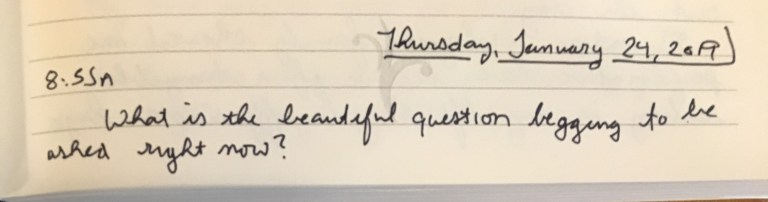 Thursday, January 24, 2019
8:55A
What is the beautiful question begging to be
asked right now?